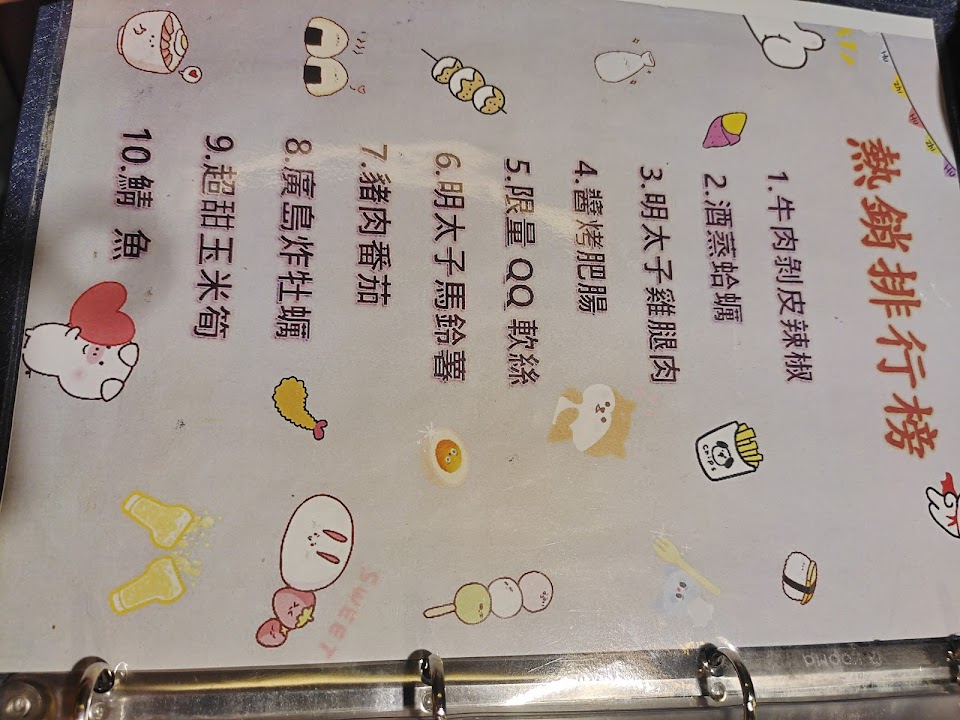 熱銷排行榜
1.牛肉剝皮辣椒
2.酒蒸蛤蠣
3.明太子雞腿肉
4.醬烤肥腸
5.限量 QQ 軟絲
6.明太子馬鈴薯
7.豬肉番茄
8.廣島炸牡蠣
9.超甜玉米筍
10.鯖 魚
CHIPS
SWEET